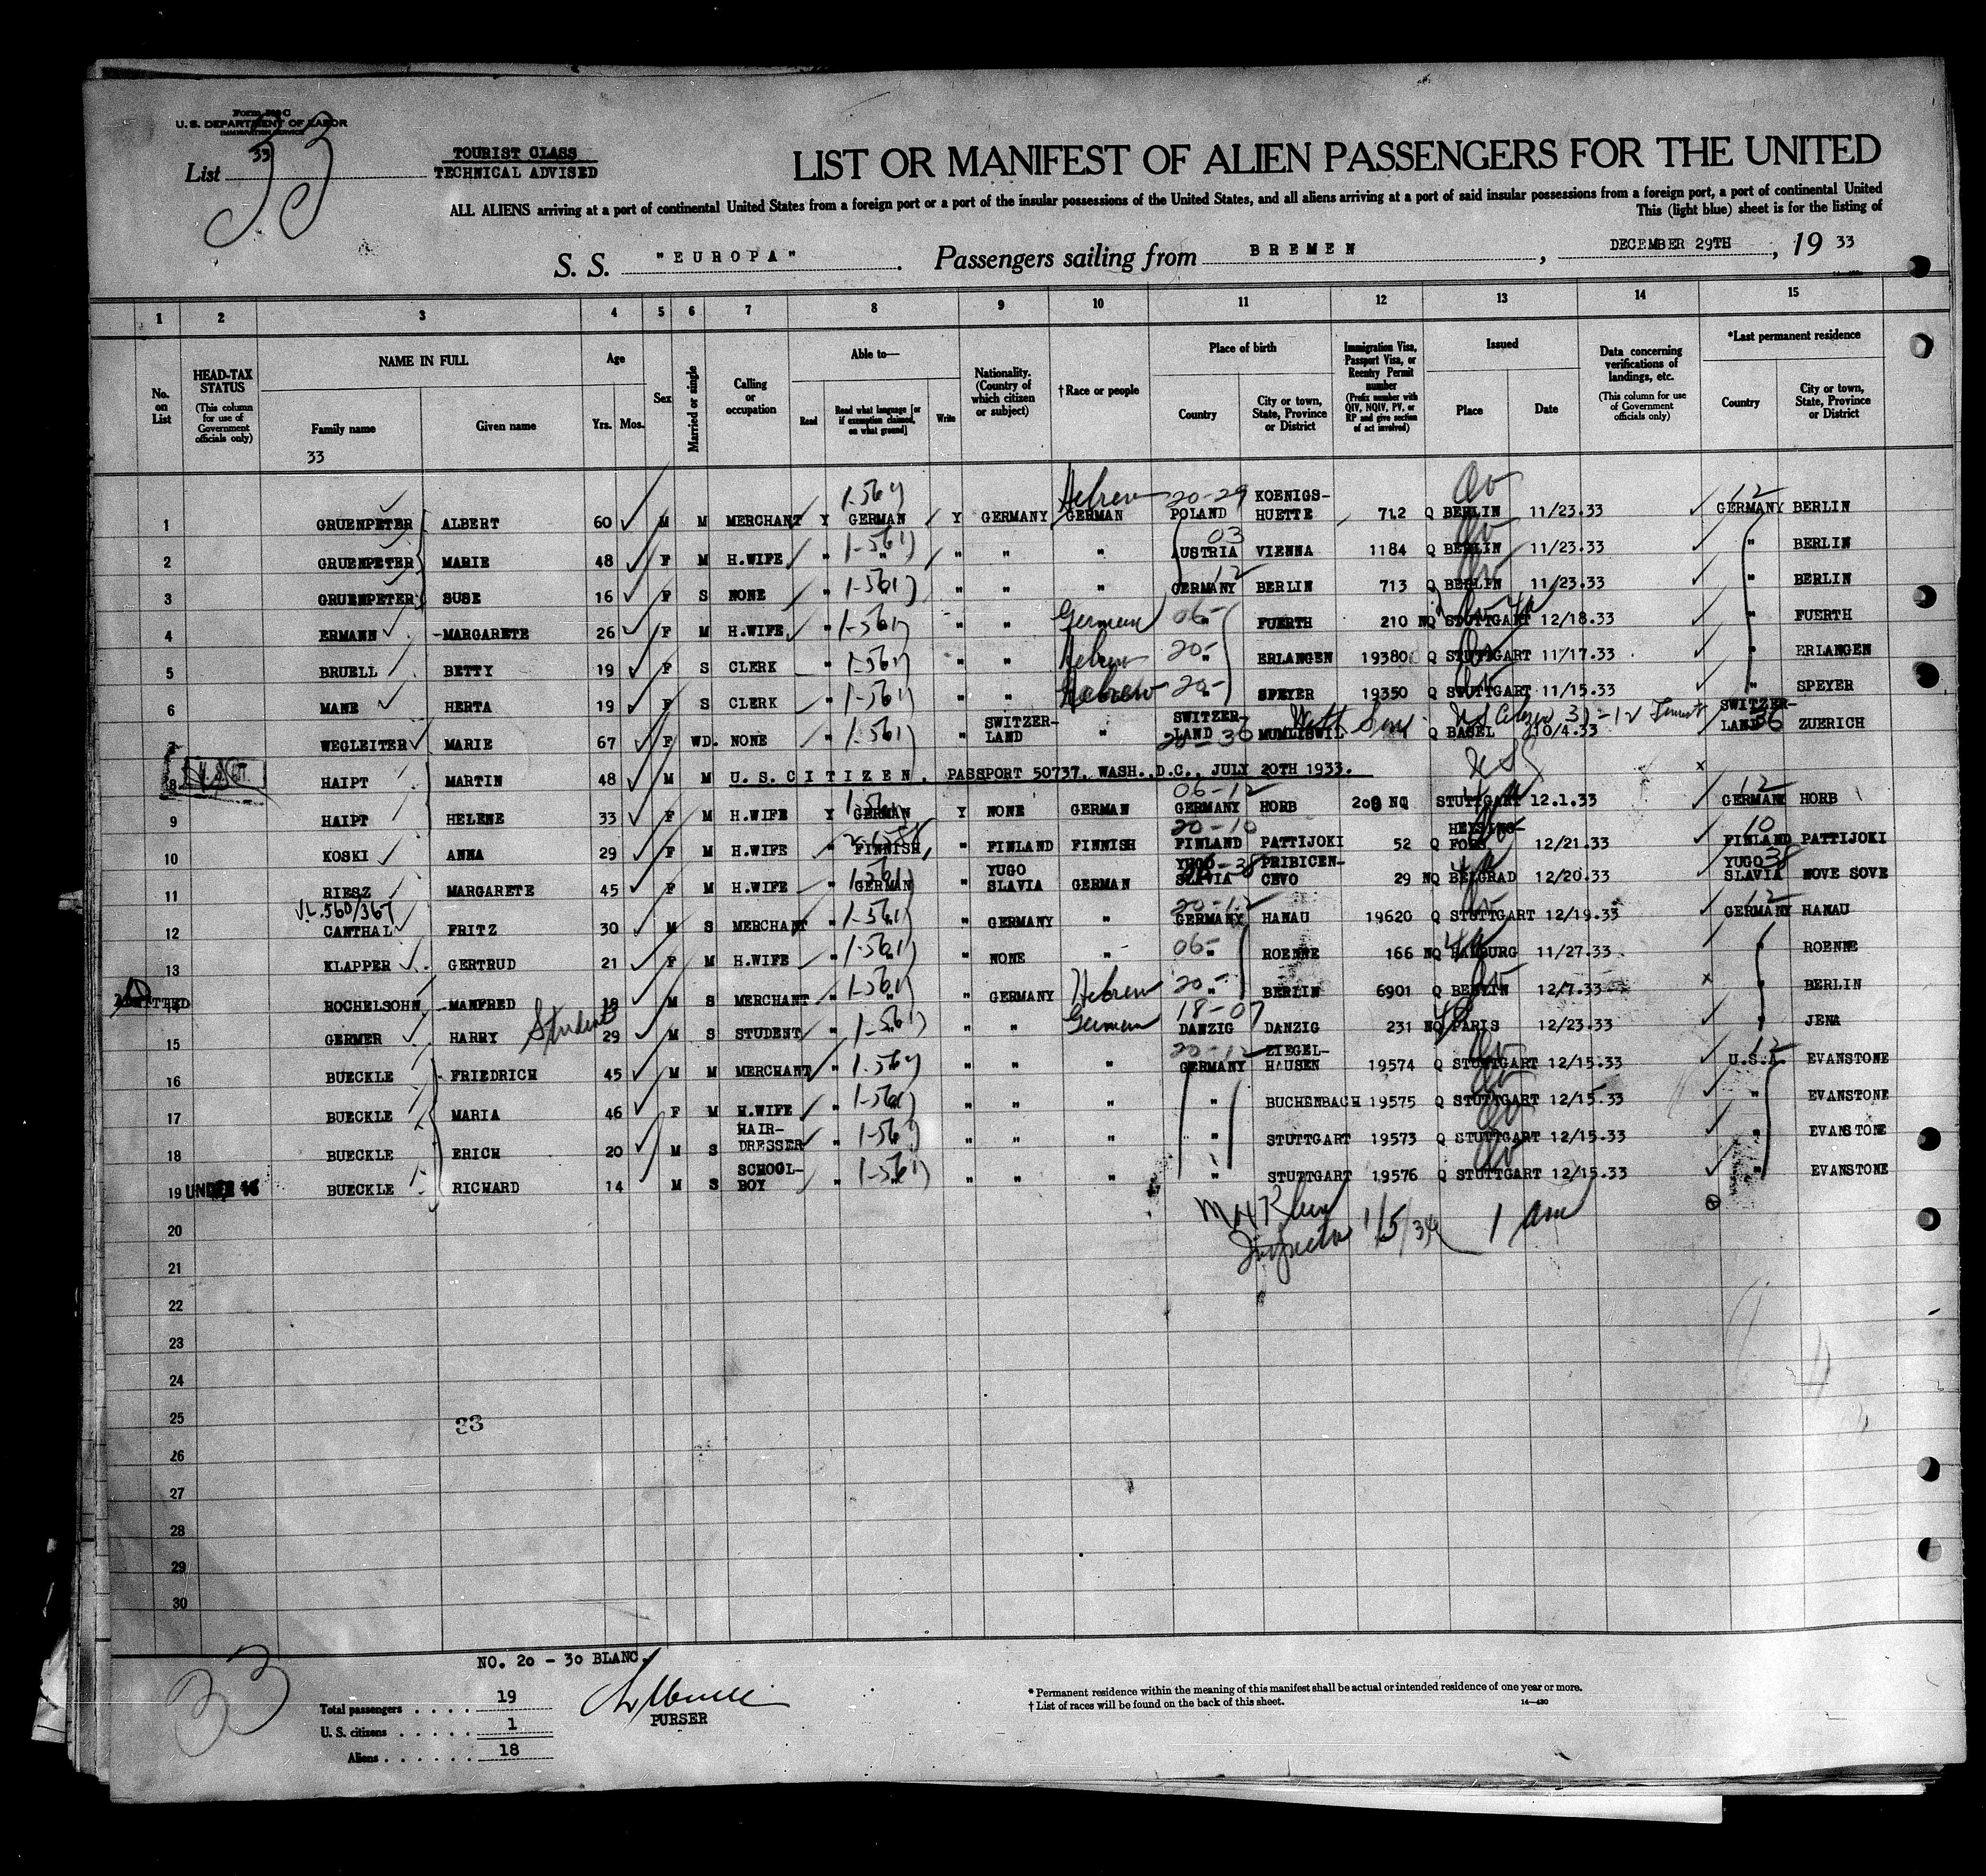 Form 500 C
U. S. DEPARTMENT OF LABOR
IMMIGRATION SERVICE
List 33
33
TOURIST CLASS
TECHNICAL ADVISED
LIST OR MANIFEST OF ALIEN PASSENGERS FOR THE UNITED
ALL ALIENS arriving at a port of continental United States from a foreign port or a port of the insular possessions of the United States, and all aliens arriving at a port of said insular possessions from a foreign port, a port of continental United
This (light blue) sheet is for the listing of
S. S. "EUROPA" . Passengers sailing from BREMEN , DECEMBER 29TH , 19 33
1 2 3 4 5 6 7 8 9 10 11 12 13 14 15
No. on List
HEAD-TAX STATUS (This column for use of Government officials only)
NAME IN FULL
Family name Given name
33
Age
Yrs. Mos.
Sex
Married or single
Calling or occupation
Able to—
Read Read what language [or if exemption claimed, on what ground] Write
Nationality. (Country of which citizen or subject)
† Race or people
Place of birth
Country City or town, State, Province or District
Immigration Visa, Passport Visa, or Reentry Permit number (Prefix number with QIV, NQIV, PV, or RP and give section of act involved)
Issued
Place Date
Data concerning verifications of landings, etc. (This column for use of Government officials only)
*Last permanent residence
Country City or town, State, Province or District
1 GRUENPETER ALBERT 60 M M MERCHANT Y GERMAN Y GERMANY GERMAN Hebrew 20-29 POLAND KOENIGS-HUETTE 712 Q BERLIN 11/23.33 GERMANY 12 BERLIN
2 GRUENPETER MARIE 48 F M H.WIFE " " " " " 03 AUSTRIA VIENNA 1184 Q BERLIN 11/23.33 " BERLIN
3 GRUENPETER SUSE 16 F S NONE " " " " 12 GERMANY BERLIN 713 Q BERLIN 11/23.33 " BERLIN
4 ERMANN -MARGARETE 26 F M H.WIFE " " " German 06- " FUERTH 210 NQ STUTTGART 12/18.33 " FUERTH
5 BRUELL BETTY 19 F S CLERK " " " Hebrew 20- " ERLANGEN 19380 Q STUTTGART 11/17.33 " ERLANGEN
6 MANE HERTA 19 F S CLERK " " " Hebrew 20- " SPEYER 19350 Q STUTTGART 11/15.33 " SPEYER
7 WEGLEITER MARIE 67 F WD. NONE " " SWITZER-LAND " SWITZER-LAND 20-36 MUMLISWIL Q BASEL 10/4.33 SWITZER-LAND 36 ZUERICH
8 HAIPT MARTIN 48 M M U.S. CITIZEN. PASSPORT 50737. WASH.,D.C., JULY 20TH 1933. US x
9 HAIPT HELENE 33 F M H.WIFE Y GERMAN Y NONE GERMAN 06-12 GERMANY HORB 200 NQ STUTTGART 12.1.33 12 GERMANY HORB
10 KOSKI ANNA 29 F M H.WIFE " FINNISH " FINLAND FINNISH 20-10 FINLAND PATTIJOKI 52 Q HELSING-FORS 12/21.33 10 FINLAND PATTIJOKI
11 RIESZ MARGARETE 45 F M H.WIFE " GERMAN " YUGO SLAVIA GERMAN YUGO SLAVIA 06-38 PRIBICEN-CEVO 29 NQ BELGRAD 12/20.33 YUGO SLAVIA 38 NOVE SOVE
V.L.560/367
12 CANTHAL FRITZ 30 M S MERCHANT " " " GERMANY " 20-12 GERMANY HANAU 19620 Q STUTTGART 12/19.33 12 GERMANY HANAU
13 KLAPPER GERTRUD 21 F M H.WIFE " " " NONE " 06- " ROENNE 166 NQ HAMBURG 11/27.33 " ROENNE
ADMITTED 14 ROCHELSOHN MANFRED 18 M S MERCHANT " " " GERMANY Hebrew 20- " BERLIN 6901 Q BERLIN 12/7.33 x " BERLIN
15 GERMER HARRY Student 29 M S STUDENT " " " German 18-07 DANZIG DANZIG 231 NQ PARIS 12/23.33 " JENA
16 BUECKLE FRIEDRICH 45 M M MERCHANT " " " " 20-12 GERMANY ZIEGEL-HAUSEN 19574 Q STUTTGART 12/15.33 12 U.S.A. EVANSTONE
17 BUECKLE MARIA 46 F M H.WIFE " " " " " BUCHENBACH 19575 Q STUTTGART 12/15.33 " EVANSTONE
18 BUECKLE ERICH 20 M S HAIR-DRESSER " " " " " STUTTGART 19573 Q STUTTGART 12/15.33 " EVANSTONE
19 UNDER 16 BUECKLE RICHARD 14 M S SCHOOL-BOY " " " " " STUTTGART 19576 Q STUTTGART 12/15.33 " EVANSTONE
20
Inspector 1/5/34 1 am
21
22
23
24
25
33
26
27
28
29
30
33
NO. 20 - 30 BLANC.
Total passengers . . . . 19
U. S. citizens . . . . . 1
Aliens . . . . . . 18
PURSER
* Permanent residence within the meaning of this manifest shall be actual or intended residence of one year or more.
† List of races will be found on the back of this sheet.
14—430